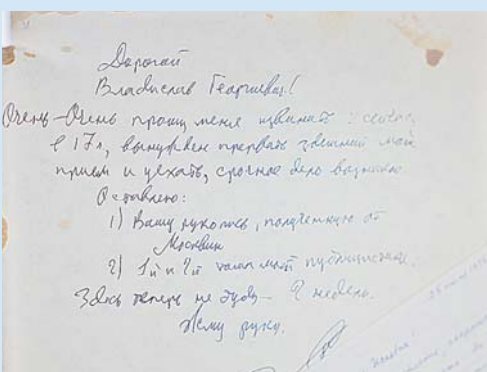 Дорогой
Владислав Георгиевич!
Очень-Очень прошу меня извинить: сейчас
в 17ч, вынужден прервать здешний мой
прием и уехать, срочное дело возникло
Оставляю:
1) Вашу рукопись, полученную от
Москвин
2) 1й и 2й тома моей публицистики.
Здесь теперь не буду – 2 недели.
Жму руку.